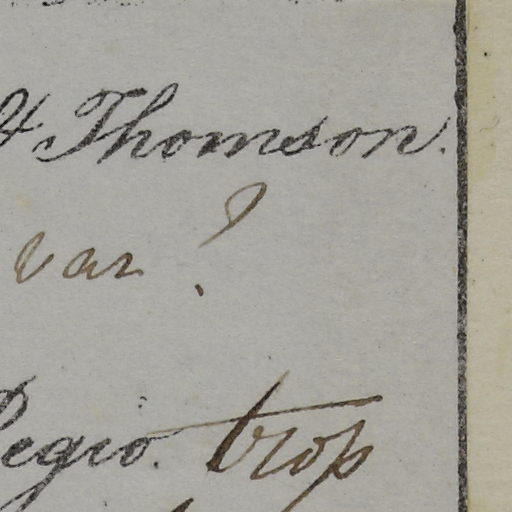 & Thomson.
var?
Regio. trop